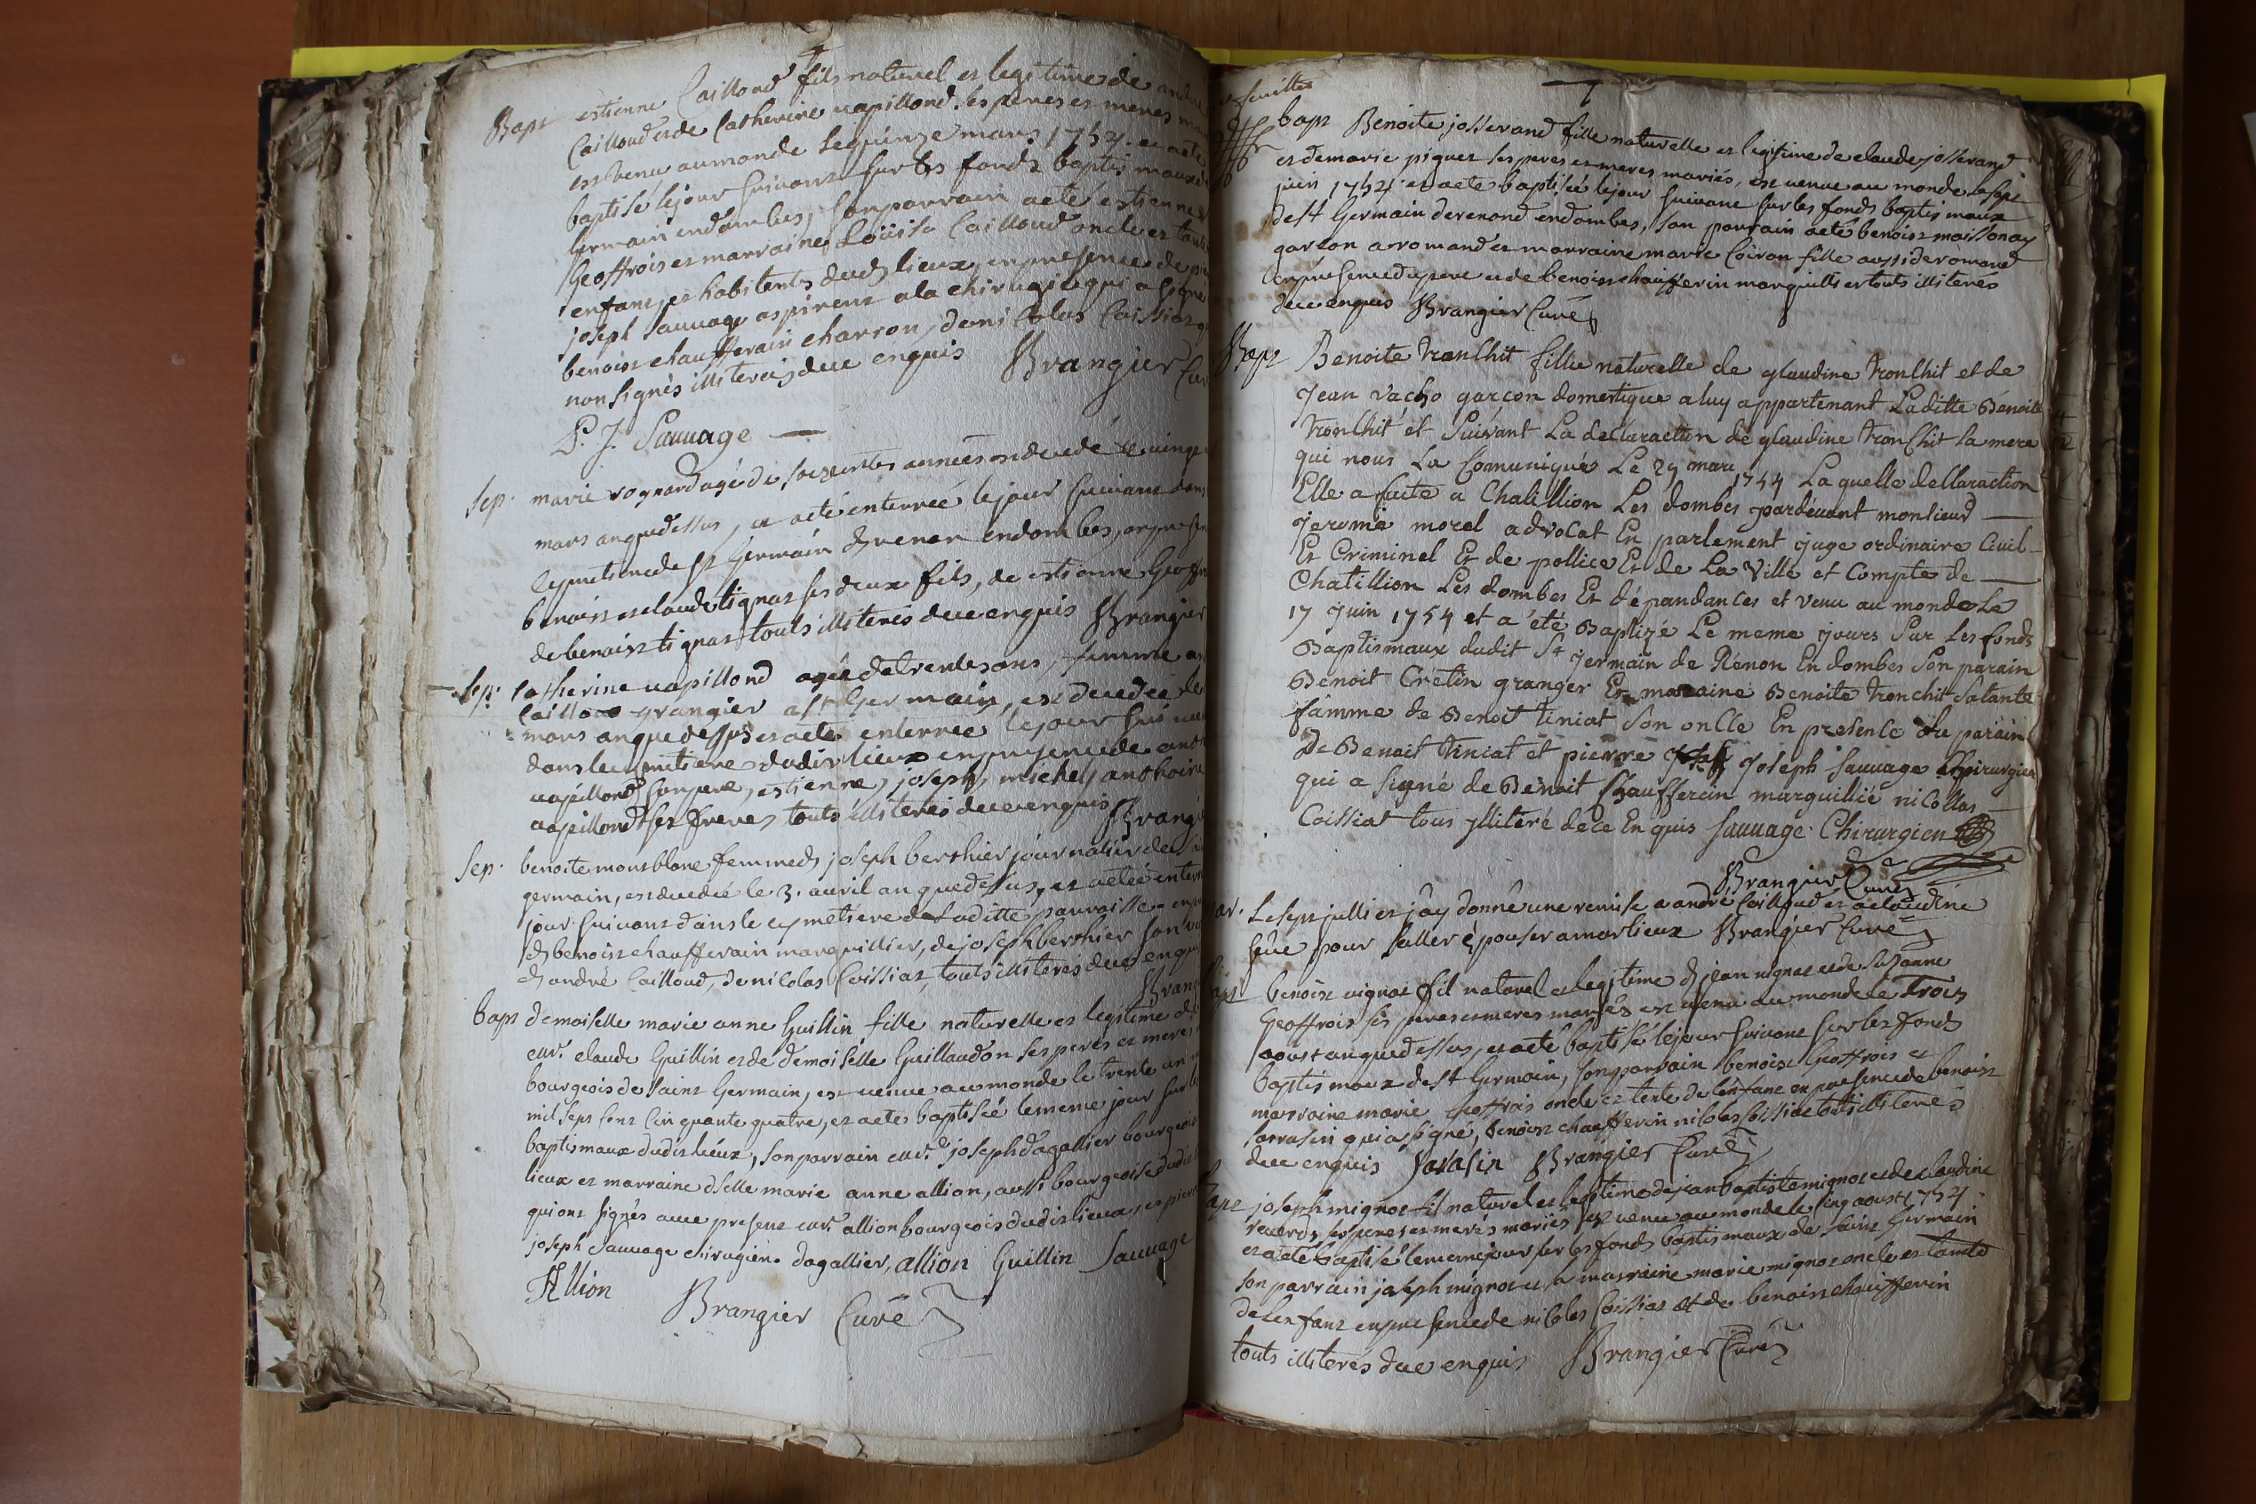 Bapt estienne Cailloud fils naturel et legitime de andré
Cailloud et de Catherine vapillond ses peres et meres
est venu au monde le quinze mars 1754. et a eté
baptisé le jour suivant sur les fonds baptis maux de
Germain en dombes, son parrain a eté estienne
Geoffrois et marraine Loüise Cailloud oncle et tante
enfant, et habitents dud lieux, en presence de
joseph Sauvage aspirent a la chirugie qui a signé
benoist chaufferain charron, de nicolas Coissiat
non signés illiterés de ce enquis Brangier Cur
P. J. Sauvage
Sep. marie rognard agé de soixentes années est decedé le vingt
mars an que dessus, et a eté enterreé le jour suivant dans
le cymetiere de St Germain de renon en dombes, en presen
benoist et claude tignat ses deux fils, de estienne Geoffr
de benoist tignat touts illiterés de ce enquis Brangier
Sep. Catherine vapillond ageé de trente ans, femme a
Cailloud grangier a St Germain, est decedeé le
mars an que dessus et a eté enterreé le jour suivant
dans le cimetiere dudit lieux en presence de
vapillond son pere, estienne, joseph, michel, anthoine
vapillond ses freres touts illiterés de ce enquis Brangi
Sep. benoite montblanc femme de joseph berthier journalier de
germain, est decedeé le 3. avril an que dessus, et a eteé enter
jour suivant dans le cymetiere de laditte parroisse en
de benoist chaufferain marguillier, de joseph berthier son
de andré Cailloud, de nicolas Coissiat, touts illiterés de ce enqu
Brang
bapt demoiselle marie anne Guillin fille naturelle et legitime de
claude Guillin et de demoiselle Guillaudon ses peres et meres
bourgeois de saint Germain, est venue au monde le trente un
mil sept Cent Cinquante quatre, et a eté baptiseé le meme jour sur les
baptismaux dudit lieux, son parrain joseph dagallier bourgeois
lieux et marraine dselle marie anne allion, aussi bourgeoise dudit
qui ont signés avec present allion bourgeois dudit lieux, et pierre
joseph Sauvage chirugien. dagallier, allion Guillin Sauvage
Allion Brangier Curé
feuillet
bapt Benoite josserand fille naturelle et legitime de claude josserand
et de marie piquet ses peres et meres mariés, est venue au monde le sept
juin 1754 et a eté baptiseé le jour suivant sur les fonds baptis maux
de St Germain de renond en dombes, son parrain a eté benoist moissonay
garson a romand et marraine marie Coiron fille aussi de romand
en presence du pere et de benoist chaufferin marguillier touts illiterés
de ce enquis Brangier Curé
Bapt Benoite tronlhit fillie naturelle de glaudine tronlhit et de
Jean vacho garcon domestique a luy appartenant Laditte Benoite
tronlhit et Suivant La dellaraction de glaudine tronlhit la mere
qui nous La Comuniqué Le 29 mars 1754 La quelle dellaraction
Elle a faite a Chatillion Les dombes pardevant monsieud
Jeromé morel advocat En parlement Juge ordinaire Civil
Et Criminel Et de pollice Et de La Ville et Compte de
Chatillion Les dombes Et dépandances et venu au monde Le
17 juin 1754 et a été Baptizé Le meme jours Sur Les fonds
Baptismaux dudit St germain de Rénon En dombes Son parain
Benoit Crétin granger Et maraine Benoite tronchit Satante
famme de Benoit tiniat Son onclle En presence du parain
de Benoit tiniat et pierre Joseph Sauvage Chirurgien
qui a Signé de Benoit Chaufferain marguillié nicollas
Coissiat tous illiteré de ce Enquis Sauvage Chirurgien
Brangier Curé
mar. Le sept jullier j'ay donné une remise a andré Cailloud et a claudine
feüe pour saller épouser a marlieux Brangier Curé
bapt benoist vignat fil naturel et legitime de jean vignat et de Suzanne
Geoffrois ses peres et meres mariés est venu au monde le Trois
aoust an que dessus, et a eté baptisé le jour suivant sur les fonds
baptis maux de St Germain, son parrain benoist Geoffrois et
marraine marie Geoffrois oncle et tente de l'enfant en presence de benoist
sarrasin qui a signé, benoist chaufferin nicolas Coissiat touts illiterés
de ce enquis Sarasin Brangier Curé
bapt joseph mignot fil naturel et legitime de jean baptiste mignot et de claudine
ses peres et merés mariés est venu au monde le sinq aoust 1754
et a eté baptisé le meme jour sur les fonds baptis maux de Saint Germain
son parrain joseph mignot et la marraine marie mignot oncle et tante
de l'enfant en presence de nicolas Coissiat et de benoist chaufferin
touts illiterés de ce enquis Brangier Curé